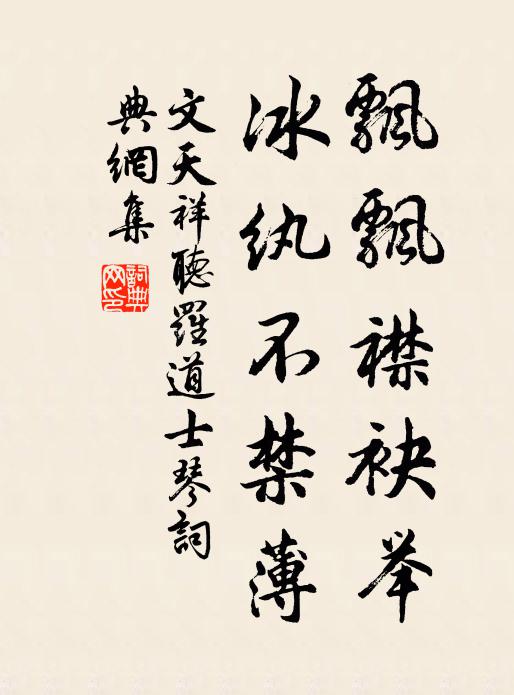 飄飄襟袂举
冰紈不禁薄
文天祥聽羅道士琴詞
典網集
詞典网印